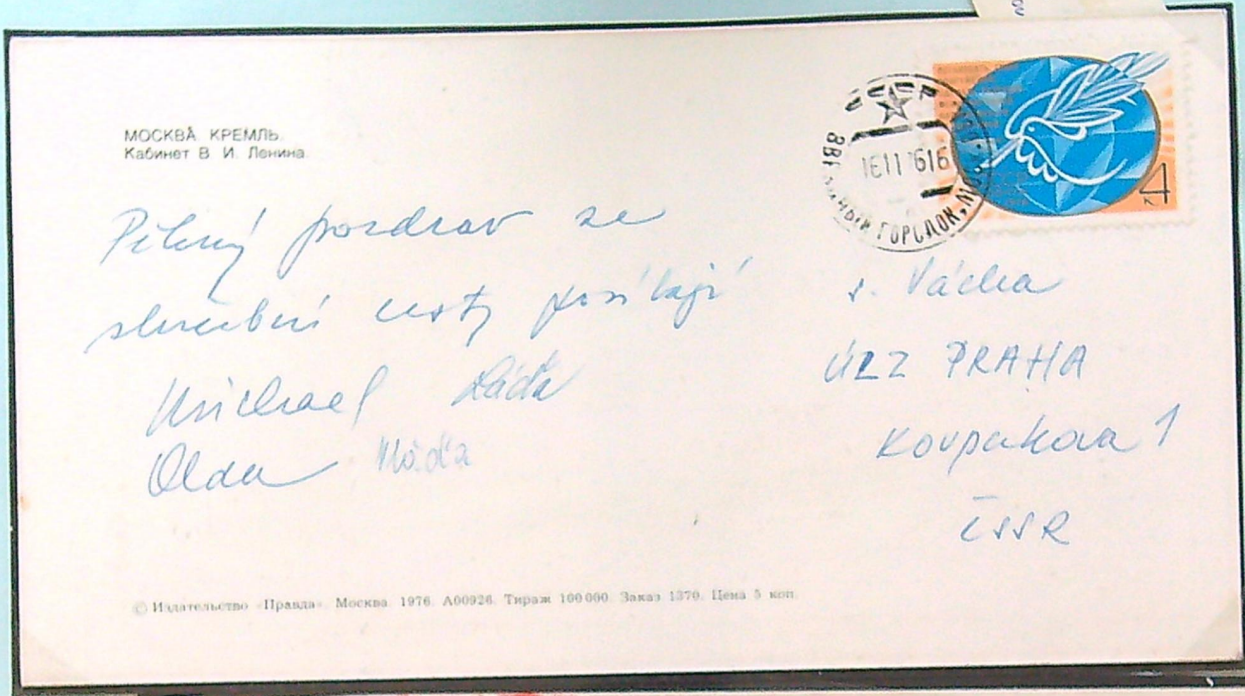 МОСКВА. КРЕМЛЬ.
Кабинет В. И. Ленина.
СССР
1611 7616
ЗВЕЗДНЫЙ ГОРОДОК, МОСК.
4
к
Pěkný pozdrav ze
služební cesty posílají
Michael Láďa
Olda
s. Vácha
ÚLZ PRAHA
Kovpakova 1
ČSSR
© Издательство «Правда». Москва. 1976. А00926. Тираж 100 000. Заказ 1370. Цена 5 коп.